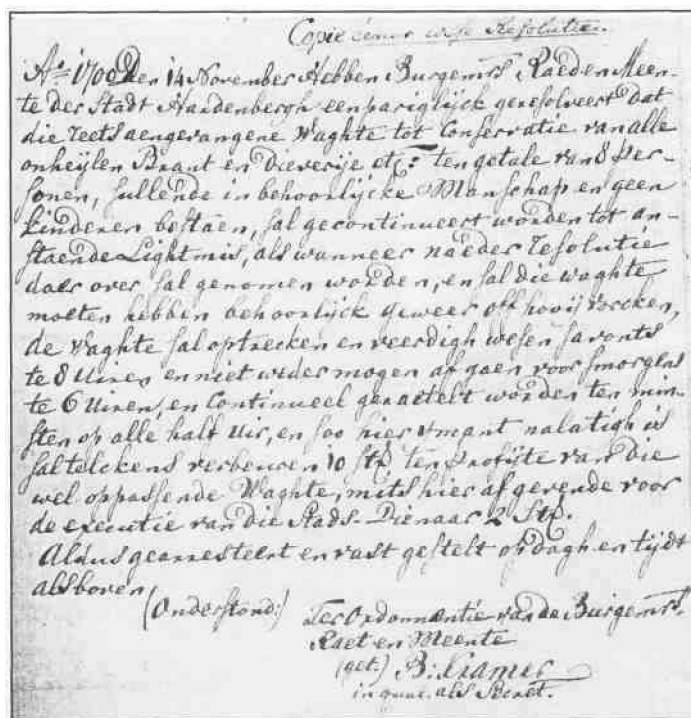 Copie eener
Resolutien.
Ao 1700 Den 14 November Hebben Burgemrs Raeden Meen-
te der Stadt Hardenbergh eenpariglijck geresolveert Dat
die reets aengevangene Waghte tot Conservatie van alle
onheijlen Brant en Dieverije etc: ten getale van 8 Per-
sonen, sullende in behoorlijcke Manschap en geen
Kinderen bestaen, sal gecontinueert worden tot an-
staende Lightmis, als wanneer naeder Resolutie
daer over sal genomen worden, en sal die waghte
moeten hebben behoorlijck geweer off
de Waghte sal optrecken en veerdigh wesen savonts
te 8 Uiren en niet weder mogen af gaen voor smorgens
te 6 Uiren, en Continueel geraetelt worden ten min-
sten op alle half Uir, en soo hier ymant nalatigh is
sal telckens verbeuren 10 st: ten profijte van die
wel oppassende Waghte, mits hier af gevende voor
de executie van die Stads-Dienaar 2 St:
Aldus gearresteert en vast gestelt op dagh en tijdt
als boven
(Onderstond:) Ter Ordonnantie van de Burgemrs.
Raet en Meente
(get.) B: Cramer
in als Secret.